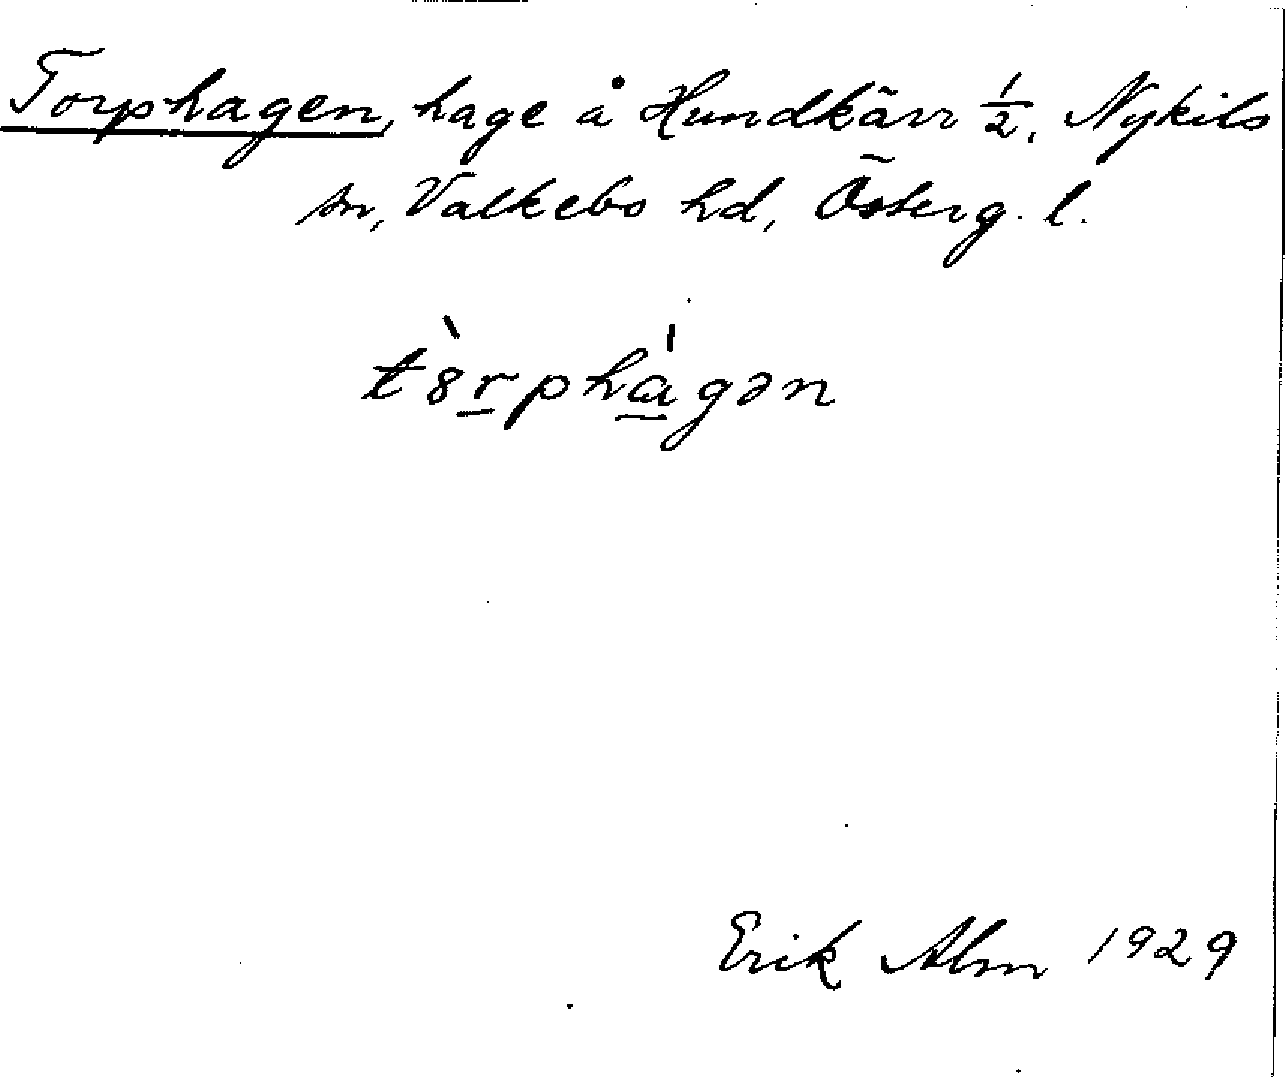 Torphagen, hage å Hundkärr ½, Nykils
sn, Valkebo hd, Österg. l.
tȣ̀rphágən
Erik Alm 1929